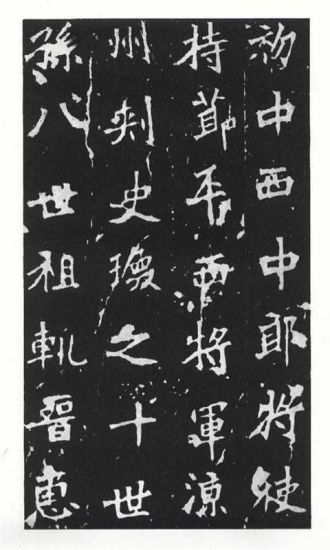 初中西中郎将使
持莭平西将軍涼
州刾史瓊之十世
孫八世祖軌晉惠